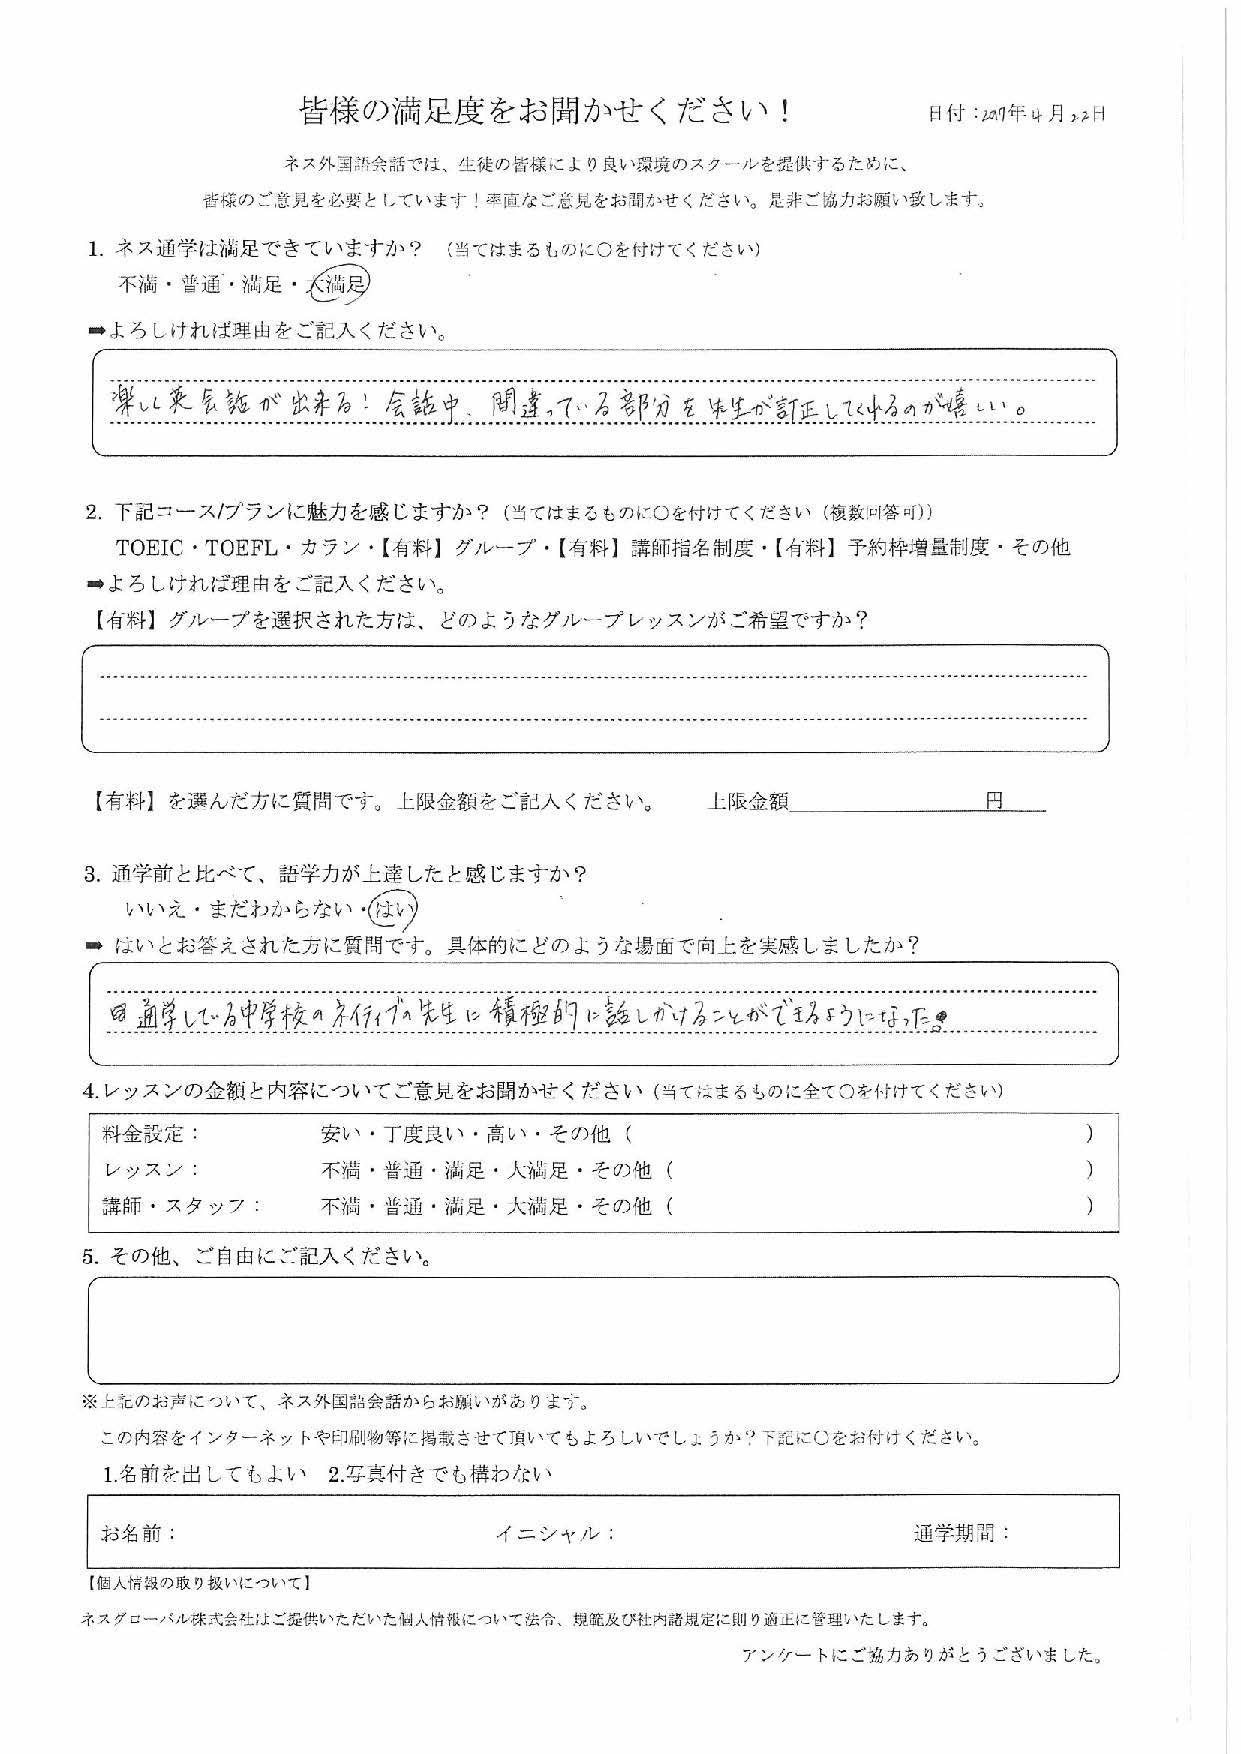 皆様の満足度をお聞かせください！
日付：2017年4月22日
ネス外国語会話では、生徒の皆様により良い環境のスクールを提供するために、
皆様のご意見を必要としています！率直なご意見をお聞かせください。是非ご協力お願い致します。
1. ネス通学は満足できていますか？ （当てはまるものに〇を付けてください）
不満・普通・満足・大満足
➡よろしければ理由をご記入ください。
楽しく英会話が出来る！会話中、間違っている部分を先生が訂正してくれるのが嬉しい。
2. 下記コース/プランに魅力を感じますか？（当てはまるものに〇を付けてください（複数回答可））
TOEIC・TOEFL・カラン・【有料】グループ・【有料】講師指名制度・【有料】予約枠増量制度・その他
➡よろしければ理由をご記入ください。
【有料】グループを選択された方は、どのようなグループレッスンがご希望ですか？
【有料】を選んだ方に質問です。上限金額をご記入ください。 上限金額 円
3. 通学前と比べて、語学力が上達したと感じますか？
いいえ・まだわからない・はい
➡ はいとお答えされた方に質問です。具体的にどのような場面で向上を実感しましたか？
通学している中学校のネイティブの先生に積極的に話しかけることができるようになった
4.レッスンの金額と内容についてご意見をお聞かせください（当てはまるものに全て〇を付けてください）
料金設定： 安い・丁度良い・高い・その他（ ）
レッスン： 不満・普通・満足・大満足・その他（ ）
講師・スタッフ： 不満・普通・満足・大満足・その他（ ）
5. その他、ご自由にご記入ください。
※上記のお声について、ネス外国語会話からお願いがあります。
この内容をインターネットや印刷物等に掲載させて頂いてもよろしいでしょうか？下記に〇をお付けください。
1.名前を出してもよい 2.写真付きでも構わない
お名前： イニシャル： 通学期間：
【個人情報の取り扱いについて】
ネスグローバル株式会社はご提供いただいた個人情報について法令、規範及び社内諸規定に則り適正に管理いたします。
アンケートにご協力ありがとうございました。